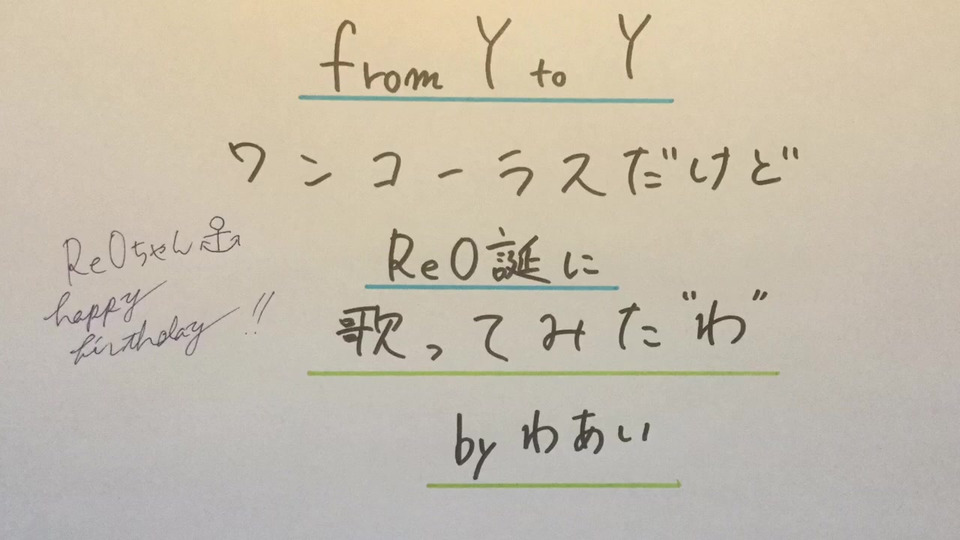 from Y to Y
ワンコーラスだけど
ReO誕に
歌ってみた"わ"
by わあい
ReOちゃん⚓
happy
birthday!!